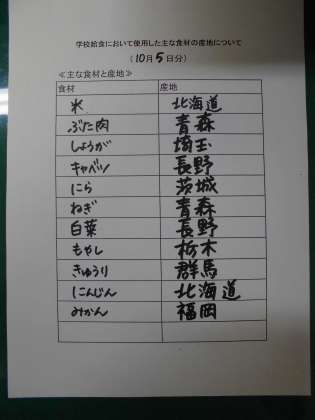 学校給食において使用した主な食材の産地について
(10月5日分)
≪主な食材と産地≫
食材 産地
米 北海道
ぶた肉 青森
しょうが 埼玉
キャベツ 長野
にら 茨城
ねぎ 青森
白菜 長野
もやし 栃木
きゅうり 群馬
にんじん 北海道
みかん 福岡